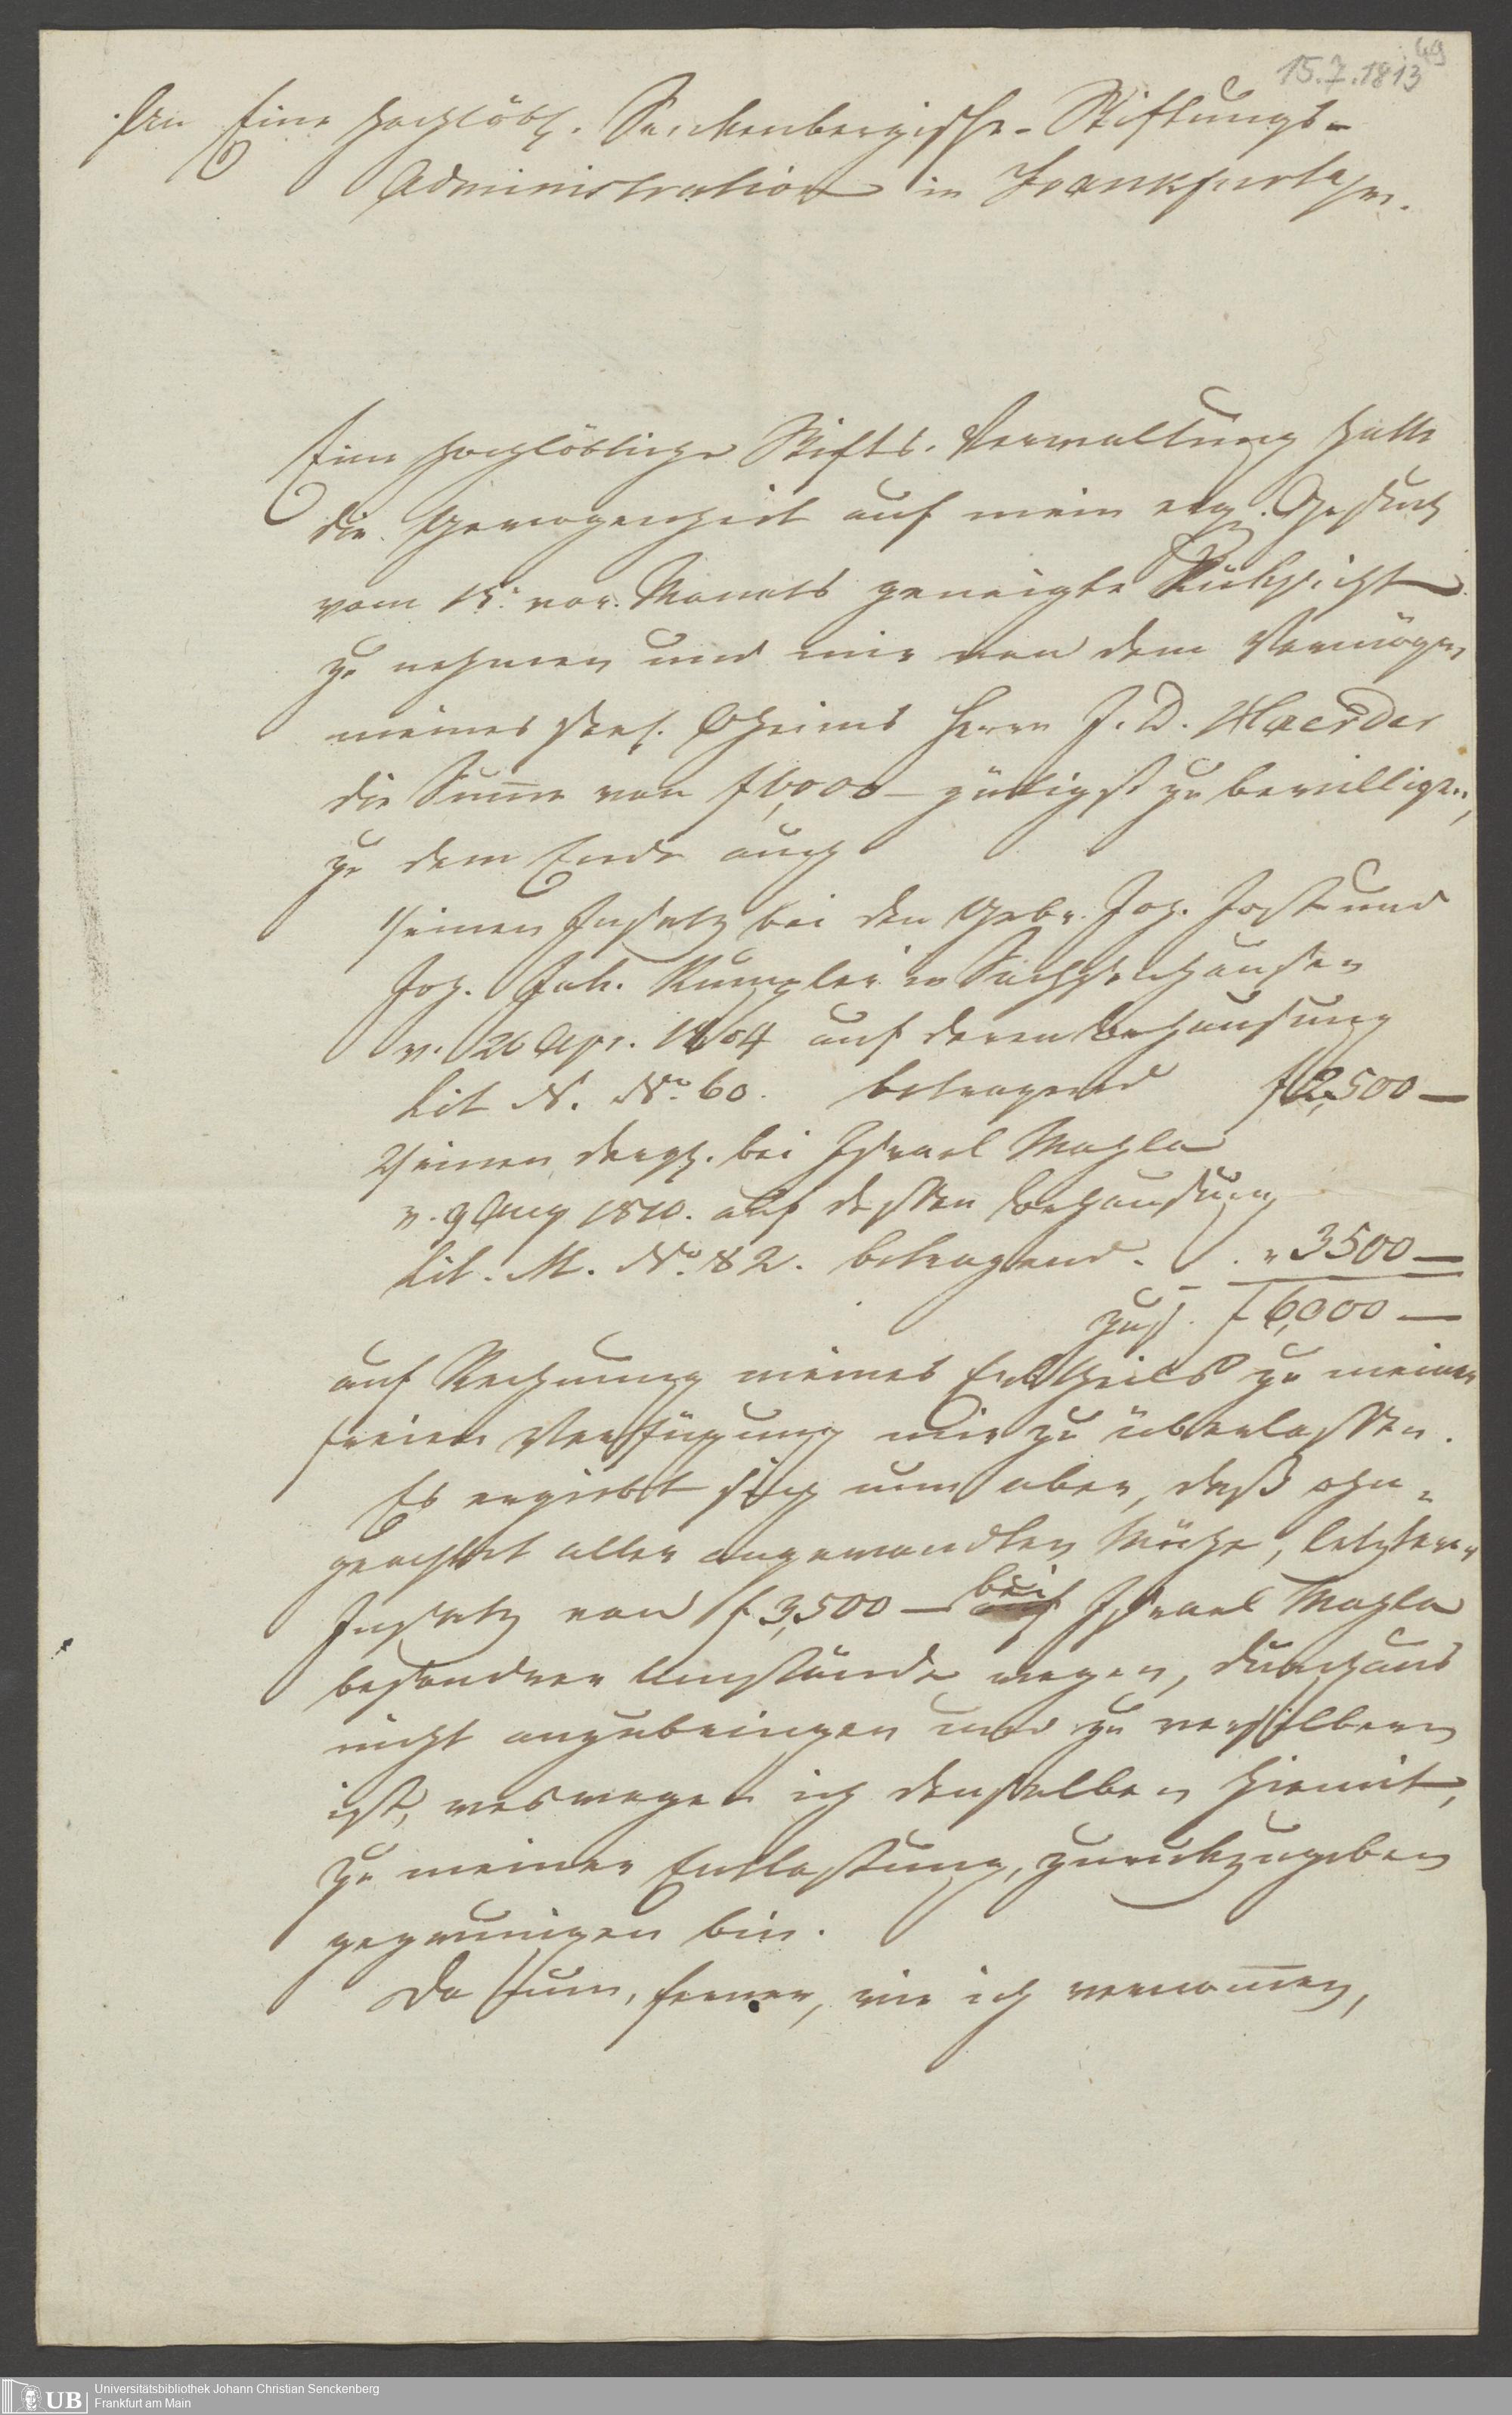 49
15.7.1813
An Eine hochlöbl. Senckenbergische-Stiftungs-
Administration in Frankfurt a/m.
Eine hochlöbliche Stifts-Verwaltung hatte
die Gewogenheit auf mein erg. Gesuch
vom 15: vor. Monats geneigte Rücksicht
zu nehmen und mir von dem Vermögen
meines sel. Oheims Herrn J. D. Haerder
die Summe von f 6,000 — gütigst zu bewilligen,
zu dem Ende auch
1/ einen Insatz bei den Gebr. Joh. Jost und
Joh. Jak. Rumpler in Sachsenhausen
v. 26 Apr. 1804 auf deren Behausung
Lit N. No. 60. betragend f 2,500 —
2/ einen dergl. bei Israel
v. 9 Aug 1810. auf dessen Behausung
Lit. M. No. 82. betragend. . „ 3500 —
zus. f 6,000 —
auf Rechnung meines Erbtheils zu meiner
freien Verfügung mir zu überlassen.
Es ergiebt sich nun aber, daß ohn-
geachtet aller angewandten Mühe, letzterer
Insatz von f 3,500 — bei Israel
besondrer Umstände wegen, durchaus
nicht anzubringen und zu versilbern
ist, weswegen ich denselben hiemit,
zu meiner Entlastung, zurückzugeben
gezwungen bin.
Da nun, ferner, wie ich vernommen,
UB Universitätsbibliothek Johann Christian Senckenberg
Frankfurt am Main